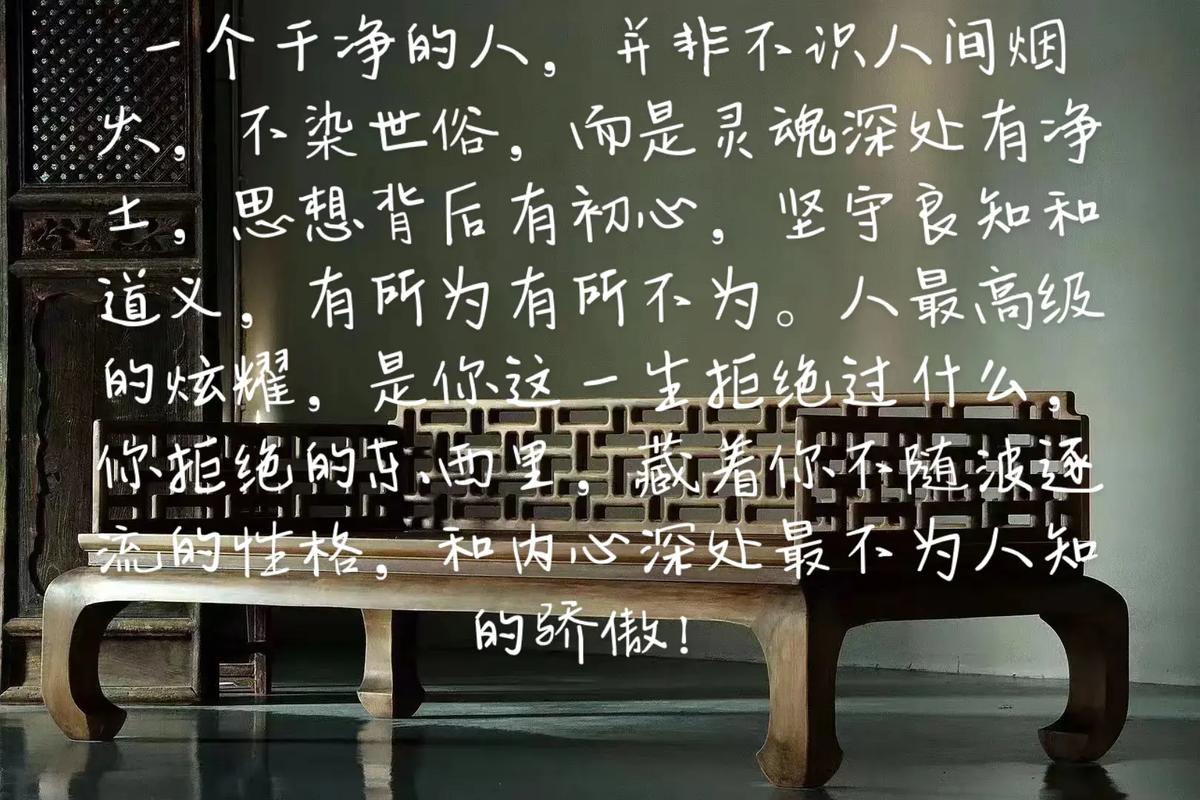 一个干净的人，并非不识人间烟
火，不染世俗，而是灵魂深处有净
土，思想背后有初心，坚守良知和
道义，有所为有所不为。人最高级
的炫耀，是你这一生拒绝过什么，
你拒绝的东西里，藏着你不随波逐
流的性格，和内心深处最不为人知
的骄傲！